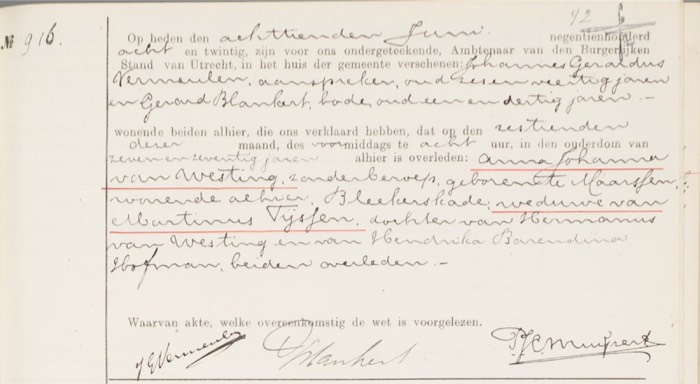 № 916.
Op heden den achttienden Juni negentienhonderd
acht en twintig, zijn voor ons ondergeteekende, Ambtenaar van den Burgerlijken
Stand van Utrecht, in het huis der gemeente verschenen: Johannes Gerardus
Vermeulen, aanspreker, oud zes en veertig jaren
en Gerard Blankert, bode, oud een en dertig jaren. —
wonende beiden alhier, die ons verklaard hebben, dat op den zestienden
dezer maand, des voormiddags te acht uur, in den ouderdom van
zeven en zeventig jaren alhier is overleden: Anna Johanna
van Westing, zonder beroep, geboren te Maarssen,
wonende alhier, Bleekerskade; weduwe van
Martinus Tijssen, dochter van Hermanus
van Westing en van Hendrika Barendina
Hofman, beiden overleden. —
Waarvan akte, welke overeenkomstig de wet is voorgelezen.
JGVermeulen Blankert